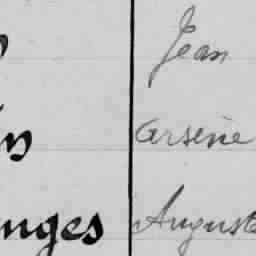 Jean
in Arsène
nges Auguste